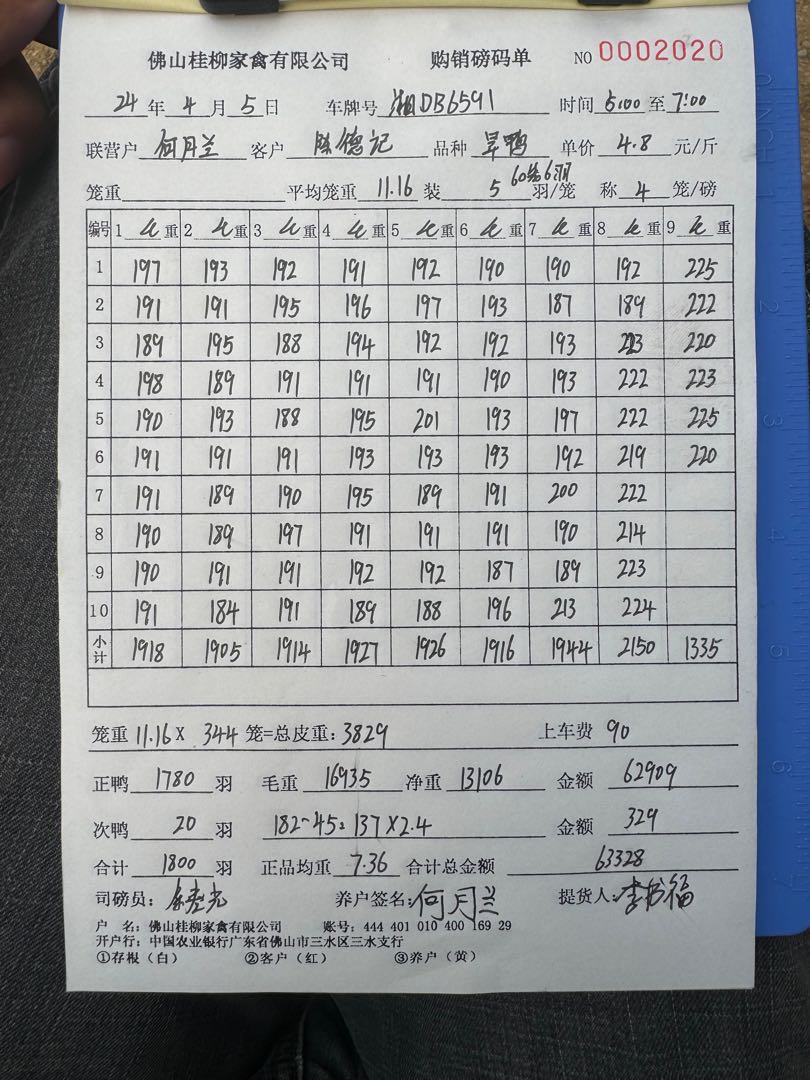 佛山桂柳家禽有限公司 购销磅码单 NO 0002020
24 年 4 月 5 日 车牌号 湘DB6591 时间 5:00 至 7:00
联营户 何月兰 客户 陈德记 品种 旱鸭 单价 4.8 元/斤
60笼6羽
笼重 平均笼重 11.16 装 5 羽/笼 称 4 笼/磅
编号 1 毛 重 2 毛 重 3 毛 重 4 毛 重 5 毛 重 6 毛 重 7 毛 重 8 毛 重 9 毛 重
1 197 193 192 191 192 190 190 192 225
2 191 191 195 196 197 193 187 189 222
3 189 195 188 194 192 192 193 223 220
4 198 189 191 191 191 190 193 222 223
5 190 193 188 195 201 193 197 222 225
6 191 191 191 193 193 193 192 219 220
7 191 189 190 195 189 191 200 222
8 190 189 197 191 191 191 190 214
9 190 191 191 192 192 187 189 223
10 191 184 191 189 188 196 213 224
小计 1918 1905 1914 1927 1926 1916 1944 2150 1335
笼重 11.16 X 344 笼=总皮重: 3829 上车费 90
正鸭 1780 羽 毛重 16935 净重 13106 金额 62909
次鸭 20 羽 182-45=137X2.4 金额 329
合计 1800 羽 正品均重 7.36 合计总金额 63328
司磅员: 养户签名: 何月兰 提货人: 李书福
户 名: 佛山桂柳家禽有限公司 账号: 444 401 010 400 169 29
开户行: 中国农业银行广东省佛山市三水区三水支行
①存根（白） ②客户（红） ③养户（黄）
INCH
1
2
3
4
5
6
7